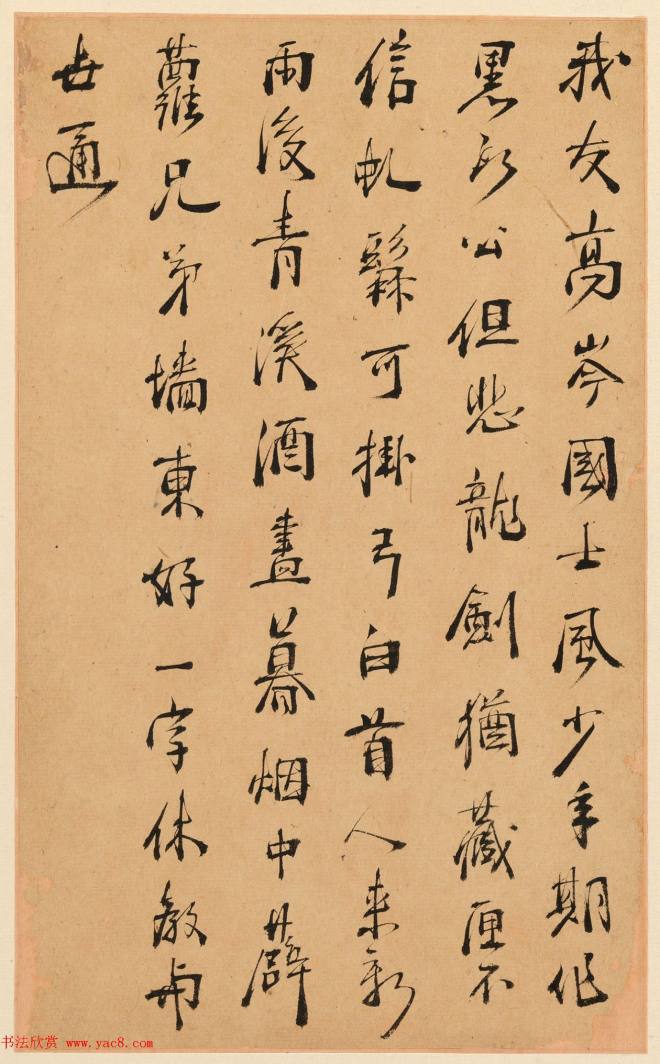 我友高岑國士風少年期作
黑頭公但悲龍劍猶藏匣不
信虬可掛弓白首人来新
雨後青溪酒畫暮烟中薜
蘿兄弟墻東好一字休教與
世通
书法欣赏 www.yac8.com